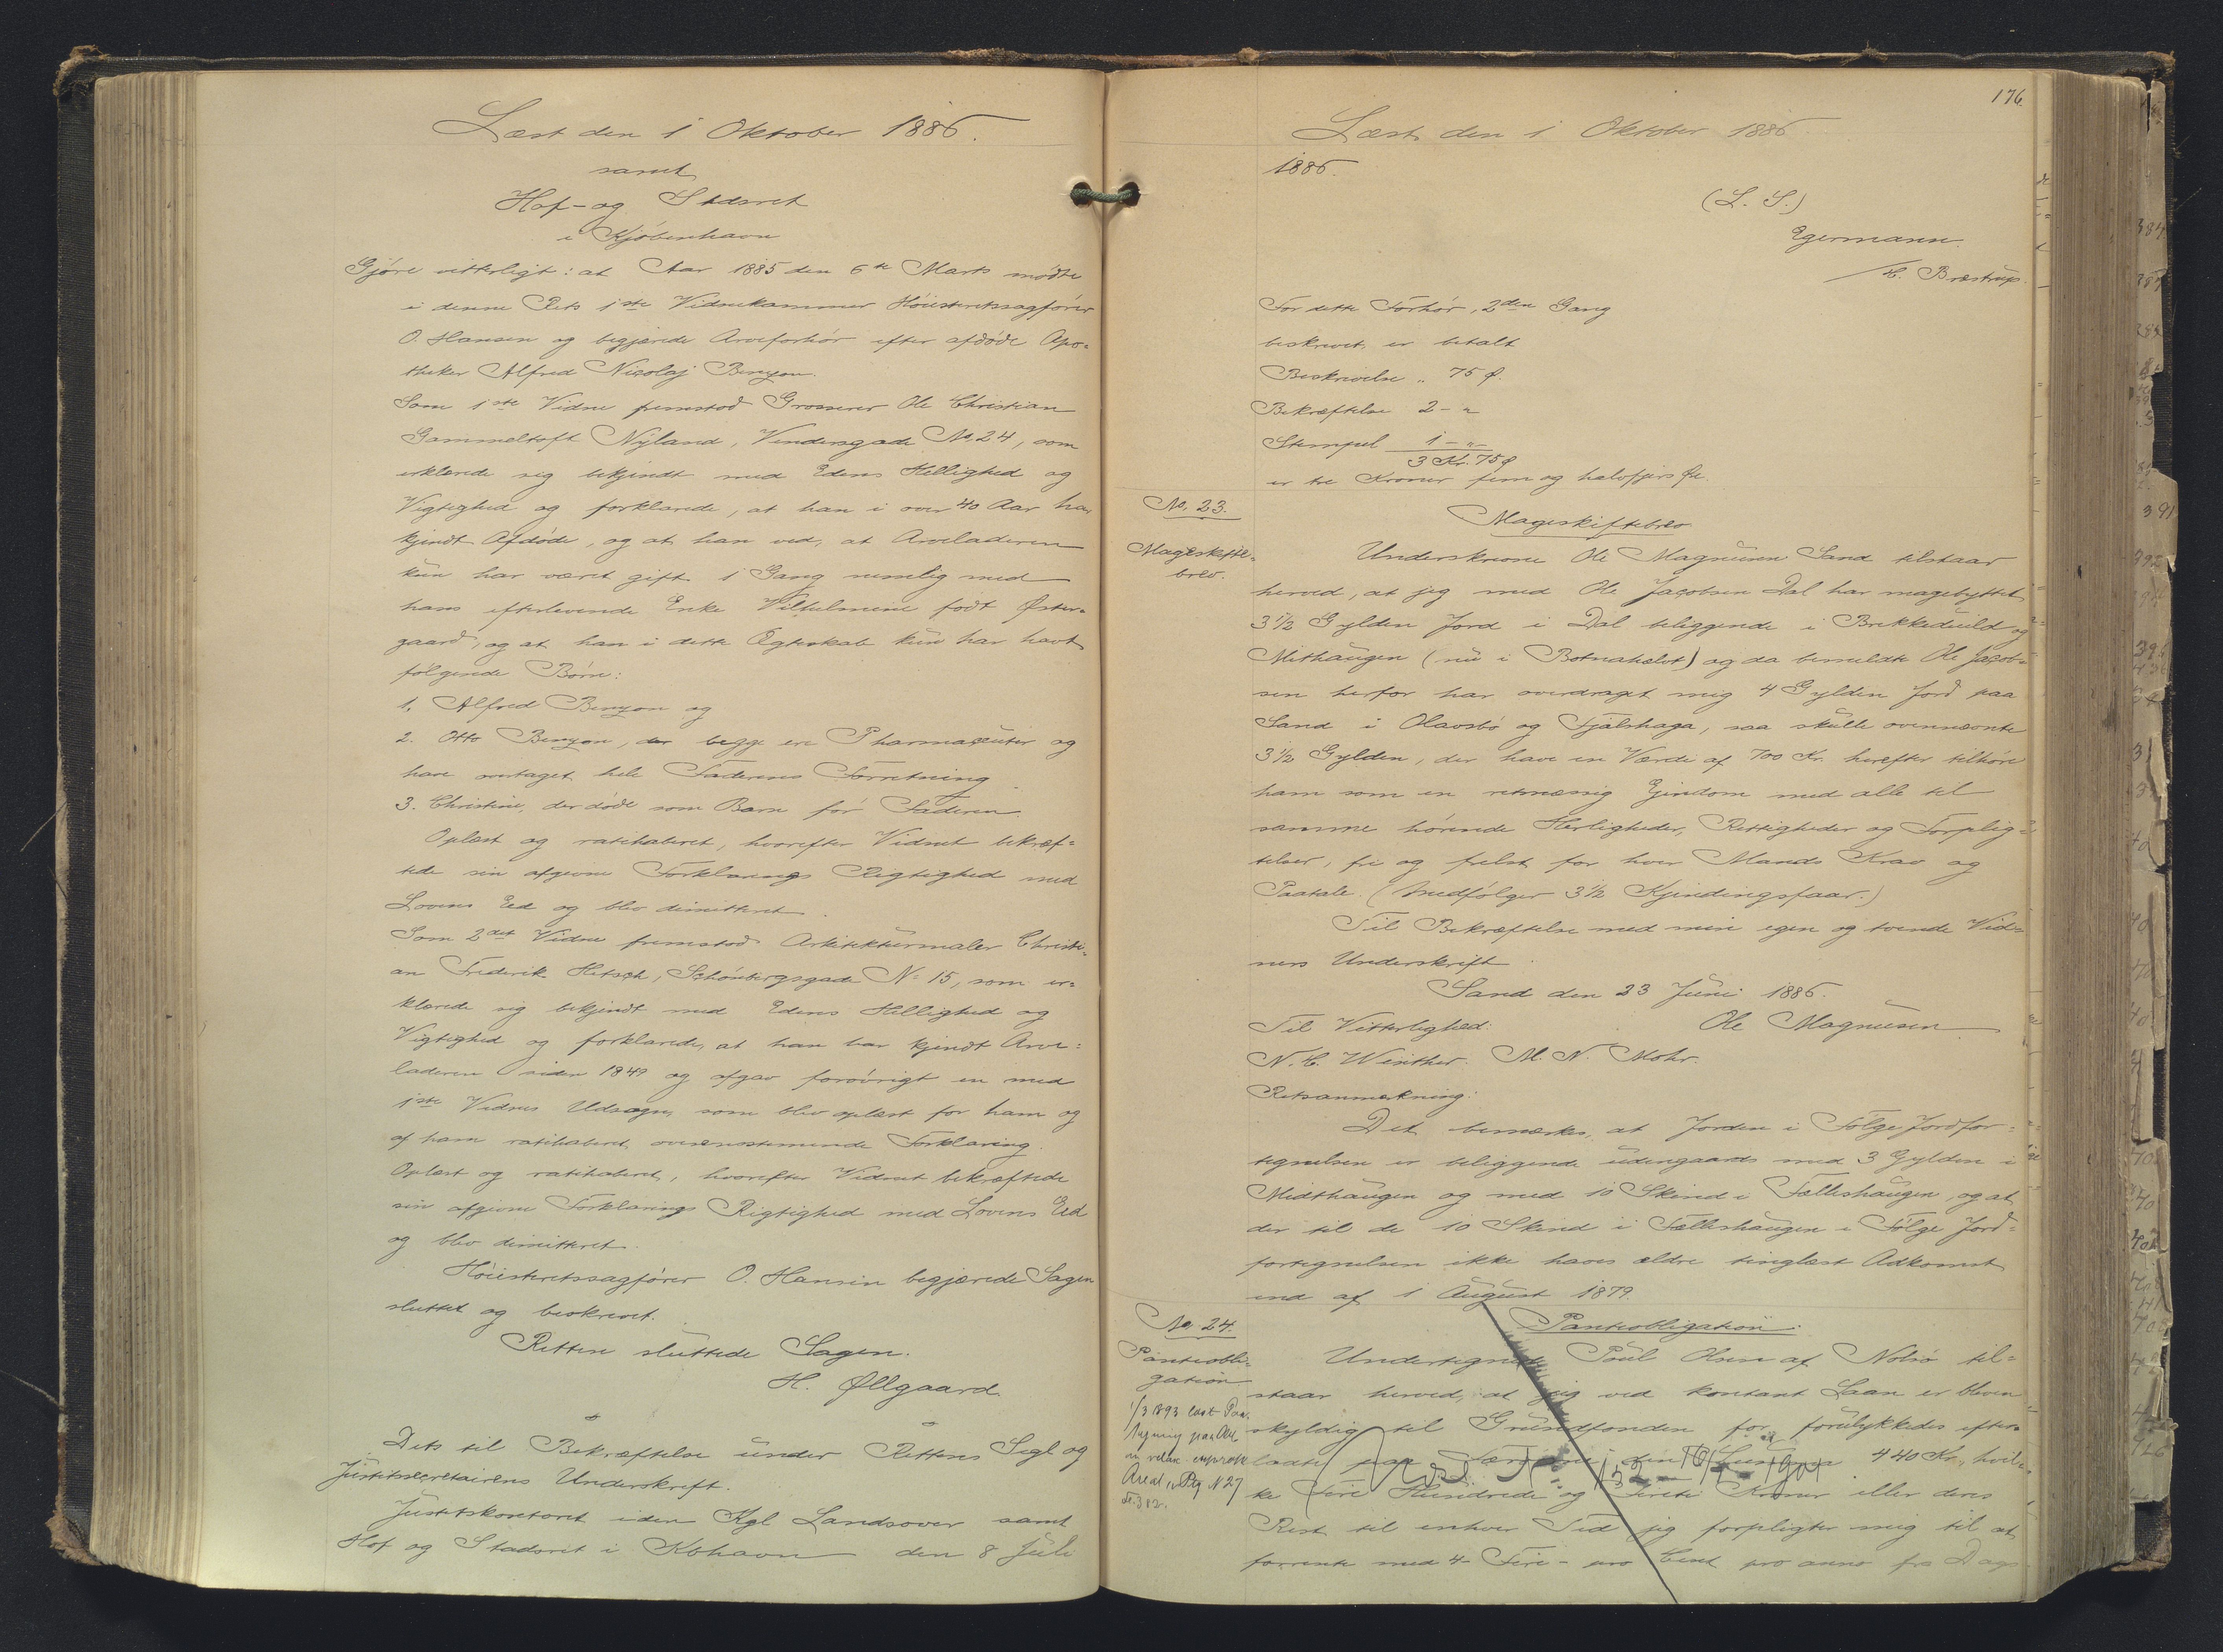 Læst den 1 Oktober 1886.
samt
Hof- og Stadsret
i Kjøbenhavn
Gjøre vitterligt: at Aar 1885 den 6te Marts mødte
i denne Rets 1ste Vidnekammer Höiesteretssagfører
O. Hansen og begjærede Arveforhör efter afdöde Apo=
theker Alfred Nicolaj Benzon.
Som 1ste Vidne fremstod Grosserer Ole Christian
Gammeltoft Nyland, Vendersgade No. 24, som
erklærede sig bekjendt med Edens Hellighed og
Vigtighed og forklarede, at han i over 40 Aar har
kjendt Afdöde, og at han ved, at Arveladeren
kun har været gift 1 Gang nemlig med
hans efterlevende Enke Vilhelmine födt Øster=
gaard, og at han i dette Ægteskab kun har havt
fölgende Börn:
1. Alfred Benzon og
2. Otto Benzon, der begge ere Pharmaceuter og
have overtaget hele Faderens Forretning
3. Christine, der döde som Barn för Faderen.
Oplæst og ratihaberet, hvorefter Vidnet bekræf=
tede sin afgivne Forklarings Rigtighed med
Lovens Eed og blev dimitteret.
Som 2det Vidne fremstod Arkitekturmaler Christi=
an Frederik Hetsch, Schönbergsgade No 15, som er=
klærede sig bekjendt med Edens Hellighed og
Vigtighed og forklarede, at han har kjendt Arve=
laderen siden 1849 og afgav forövrigt en med
1ste Vidnes Udsagn, som blev oplæst for ham og
af ham ratihaberet, overensstemmende Forklaring.
Oplæst og ratihaberet, hvorefter Vidnet bekræftede
sin afgivne Forklarings Rigtighed med Lovens Eed
og blev dimitteret.
Höiesteretssagförer O. Hansen begjærede Sagen
sluttet og beskrevet.
Retten sluttede Sagen.
H. Øllgaard.
Dets til Bekræftelse under Rettens Segl og
Justitssecretairens Underskrift.
Justitskontoret i den Kgl Landsover samt
Hof og Stadsret i Kbhavn den 8 Juli
176.
Læst den 1 Oktober 1886
1886.
(L. S.)
Egermann.
/C. Bræstrup.
For dette Forhör, 2den Gang
beskrevet, er betalt
Beskrivelse „ 75 Ø.
Bekræftelse 2 - „
Stempel 1 - „ -
3 Kr. 75 Ø
er tre Kroner fem og halvfjers Øre.
No. 23.
Mageskifte=
brev.
Mageskiftebrev
Underskrevne Ole Magnusen Sand tilstaar
herved, at jeg med Ole Jacobsen Dal har magebyttet
3 1/2 Gylden Jord i Dal beliggende i Brekkeduild og
Mithaugen (nu i Botnahelvt) og da bemeldte Ole Jacob=
sen herfor har overdraget mig 4 Gylden Jord paa
Sand i Olavsbö og Fjalshaga, saa skulle ovennævnte
3 1/2 Gylden, der have en Værdi af 700 Kr. herefter tilhöre
ham som en retmæssig Ejendom med alle til
samme hörende Herligheder, Rettigheder og Forplig=
telser, fri og frelst for hver Mands Krav og
Paatale. (Medfölger 3 1/2 Kjendingsfaar.)
Til Bekræftelse med min egen og tvende Vid=
ners Underskrift.
Sand den 23 Juni 1886.
Til Vitterlighed: Ole Magnusen
N. C. Winther. M. N. Mohr.
Retsanmærkning:
Det bemærkes, at Jorden i Fölge Jordfor=
tegnelsen er beliggende udengaards med 3 Gylden i
Midthaugen og med 10 Skind i Fælleshaugen, og at
der til de 10 Skind i Fælleshaugen i Fölge Jord=
fortegnelsen ikke haves ældre tinglæst Adkomst
end af 1 August 1879.
No. 24.
Panteobli=
gation
1/3 1893 læst Paa-
tegning paa
Areal Ptg N 27
Pantobligation.
Undertegnede Poul Olsen af Nolsö til=
staar herved, at jeg ved kontant Laan er bleven
skyldig til Grundfonden for forulykkedes efter=
ladte paa Færöerne, den Sum 440 Kr., hvil=
Udsl. No 152 - 16/1 - 1901
ke Fire Hundrede og Fireti Kroner eller deres
Rest til enhver Tid jeg forpligter mig til at
forrente med 4 - Fire - pro Cent pro anno fra Dags